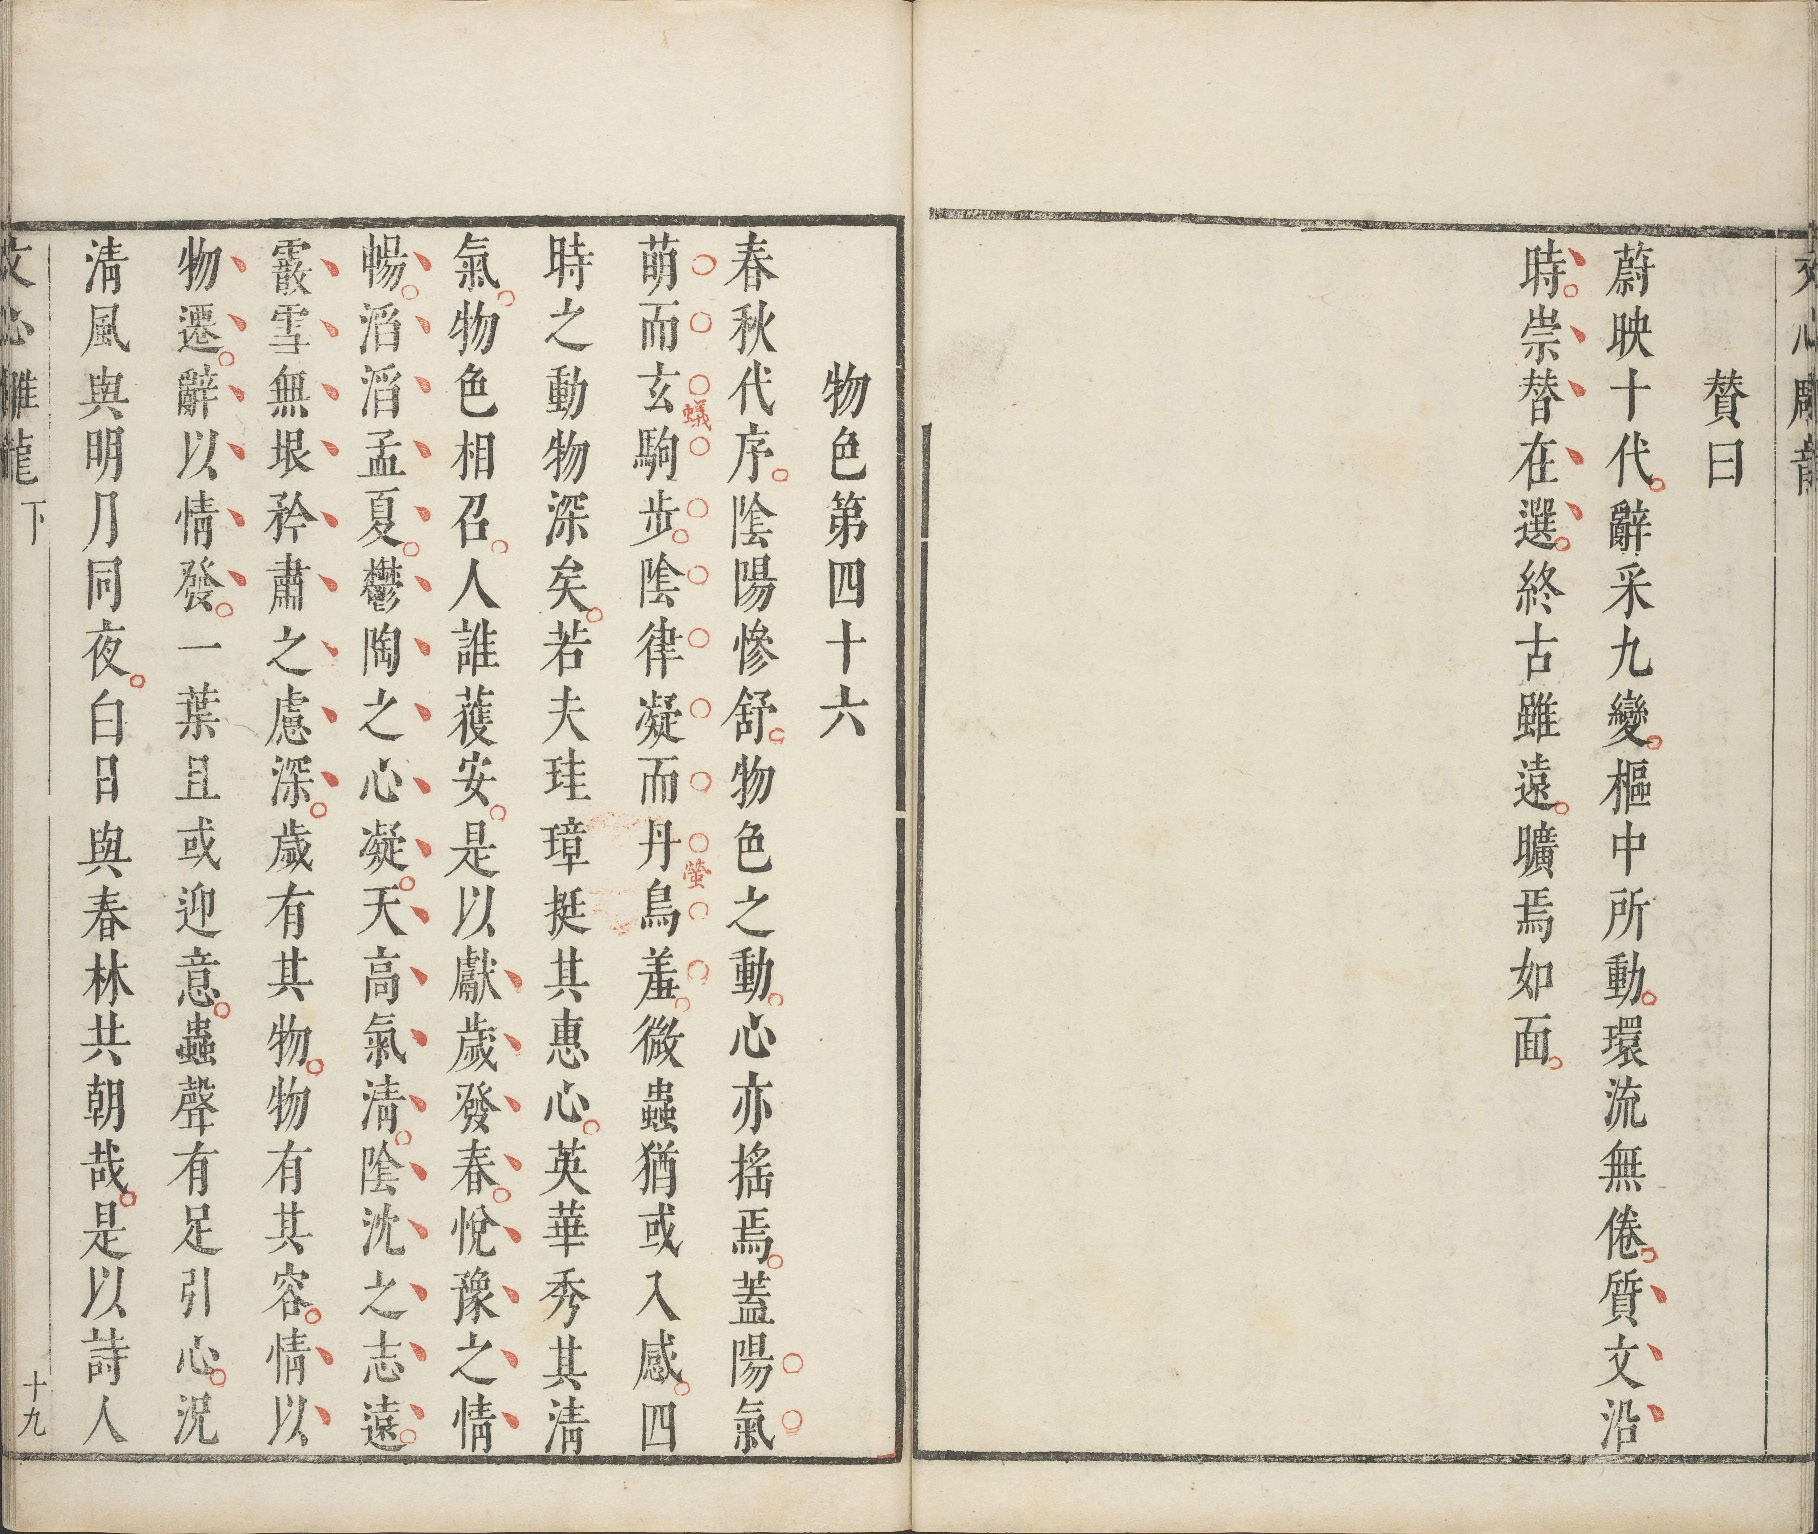 文心雕龍
贊曰
蔚映十代。辭采九變。樞中所動。環流無倦。質文沿
時。崇替在選。終古雖遠。曠焉如面。
物色第四十六
春秋代序。陰陽慘舒。物色之動。心亦搖焉。蓋陽氣
萌而玄駒步。陰律凝而丹鳥羞。微蟲猶或入感。四
蟻
螢
時之動物深矣。若夫珪璋挺其惠心。英華秀其清
氣。物色相召。人誰獲安。是以獻歲發春。悅豫之情
暢。滔滔孟夏。鬱陶之心凝。天高氣清。陰沈之志遠。
霰雪無垠矜肅之慮深。歲有其物。物有其容。情以
物遷。辭以情發。一葉且或迎意。蟲聲有足引心。況
清風與明月同夜。白日與春林共朝哉。是以詩人
文心雕龍 下
十九